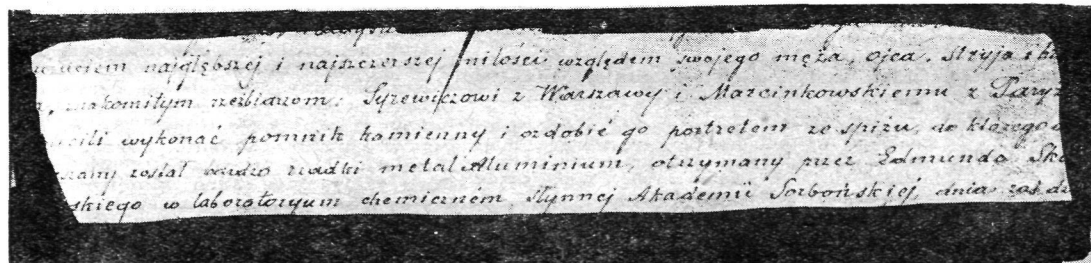 najgłębszej i najszczerszej miłości względem swojego męża, ojca, stryja i
znakomitym rzeźbiarzom: Syrewiczowi z Warszawy i Marcinkowskiemu z Paryż
wykonać pomnik kamienny i ozdobić go portretem ze spiżu, do którego
został bardzo rzadki metal Aluminium, otrzymany przez Edmunda Sk
skiego w laboratoryum chemicznem słynnej Akademii Sorbońskiej, dnia zaś